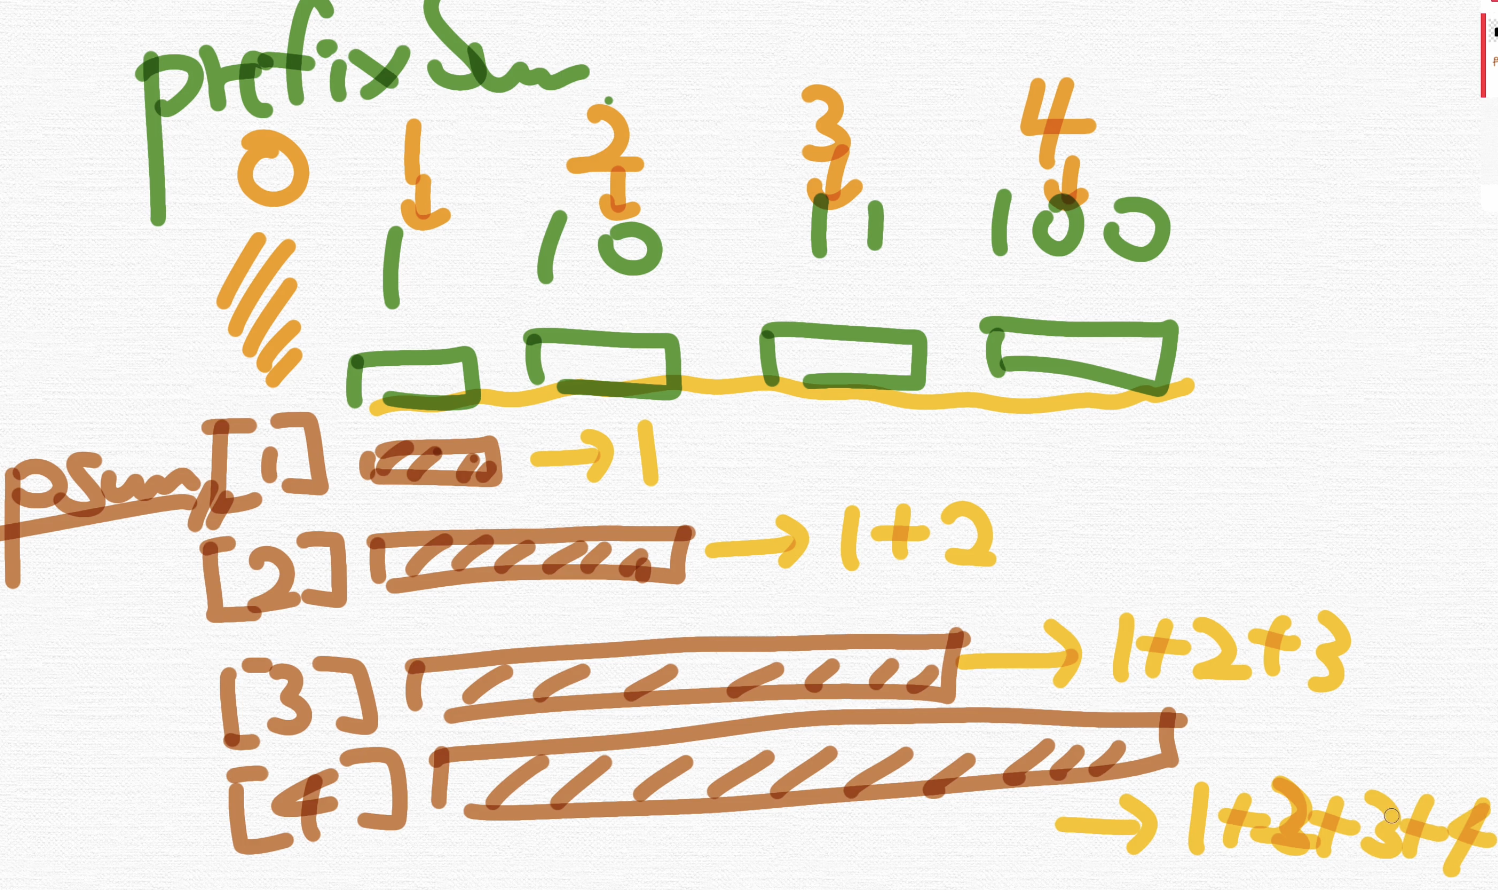 prefix Sum
0 1 2 3 4
1 10 11 100
psum [1] → 1
[2] → 1+2
[3] → 1+2+3
[4] → 1+2+3+4